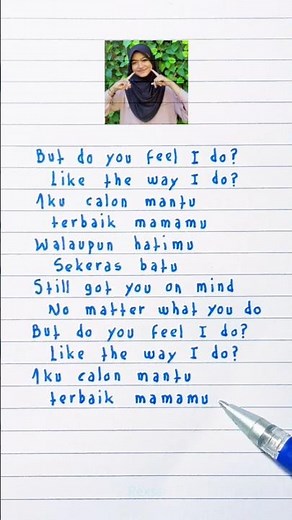 But do you feel I do?
Like the way I do?
1ku calon mantu
terbaik mamamu
Walaupun hatimu
Sekeras batu
Still got you on mind
No matter what you do
But do you feel I do?
Like the way I do?
1ku calon mantu
terbaik mamamu